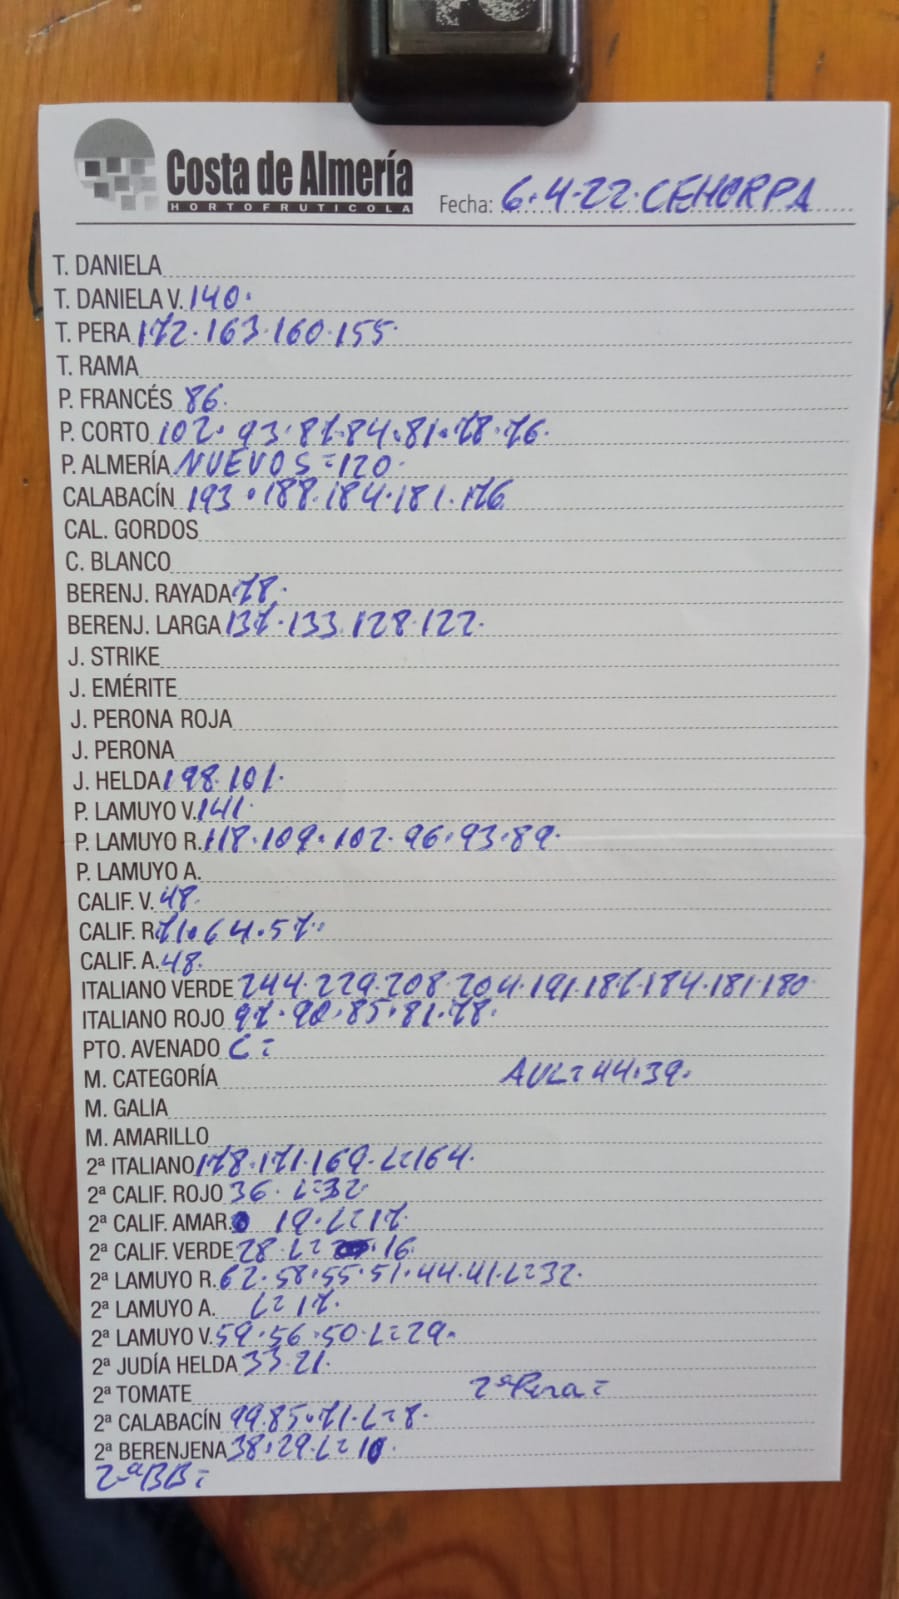 Costa de Almería
HORTOFRUTICOLA
Fecha: 6.4.22. CEHORPA
T. DANIELA
T. DANIELA V. 140.
T. PERA 172.163.160.155.
T. RAMA
P. FRANCÉS 86.
P. CORTO 102.93.87.84.81.78.76.
P. ALMERÍA NUEVOS=120.
CALABACÍN 193.188.184.181.176
CAL. GORDOS
C. BLANCO
BERENJ. RAYADA 78.
BERENJ. LARGA 137.133.128.122.
J. STRIKE
J. EMÉRITE
J. PERONA ROJA
J. PERONA
J. HELDA 198.101.
P. LAMUYO V. 141.
P. LAMUYO R. 118.109.102.96.93.89.
P. LAMUYO A.
CALIF. V. 48.
CALIF. R. 71.64.57.
CALIF. A. 48.
ITALIANO VERDE 244.229.208.204.191.186.184.181.180
ITALIANO ROJO 97.90.85.81.78.
PTO. AVENADO C=
M. CATEGORÍA AVL=44.39.
M. GALIA
M. AMARILLO
2ª ITALIANO 178.171.169.L=164.
2ª CALIF. ROJO 36. L=32
2ª CALIF. AMAR. 19.L=17.
2ª CALIF. VERDE 28.L= 16.
2ª LAMUYO R. 62.58.55.51.44.41.L=32.
2ª LAMUYO A. L=17.
2ª LAMUYO V. 59.56.50.L=29.
2ª JUDÍA HELDA 33.21.
2ª TOMATE 2ªPera=
2ª CALABACÍN 99.85.71.L=8.
2ª BERENJENA 38.29.L=10.
2ªBB=